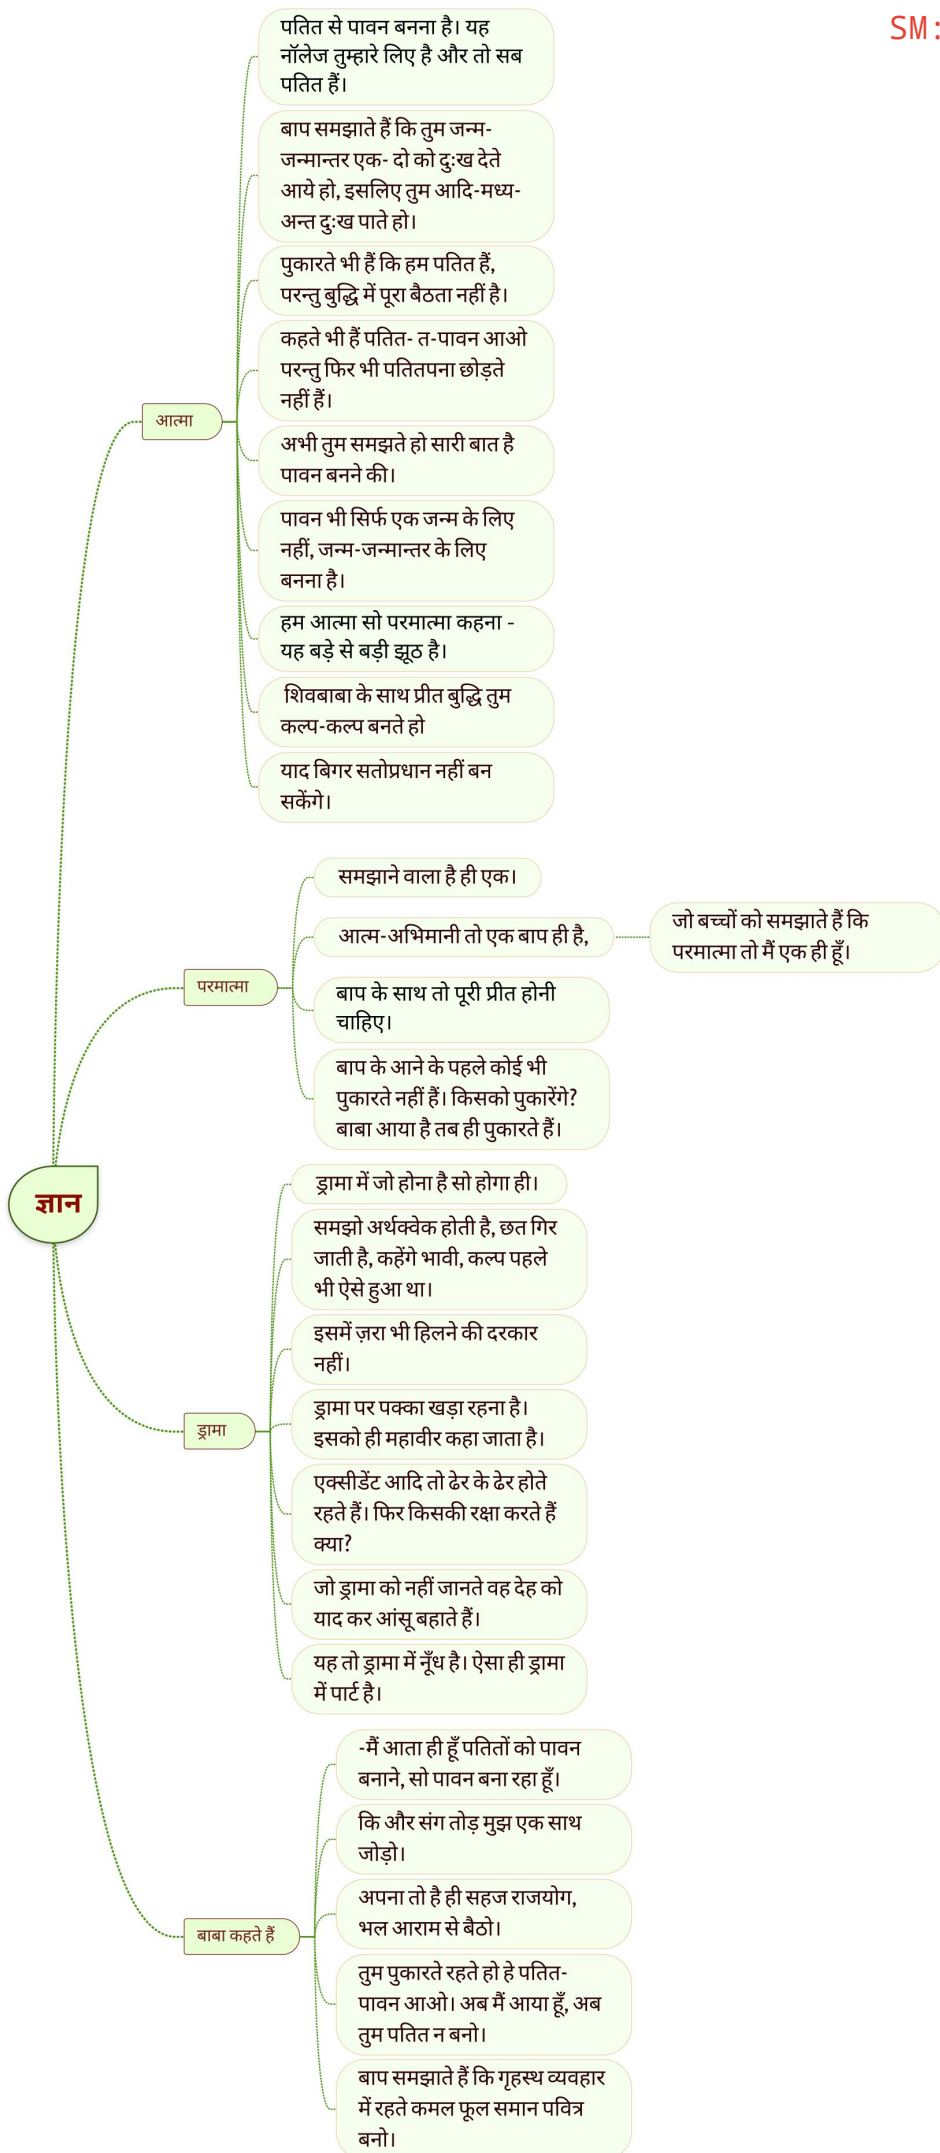 SM:
पतित से पावन बनना है। यह
नॉलेज तुम्हारे लिए है और तो सब
पतित हैं।
बाप समझाते हैं कि तुम जन्म-
जन्मान्तर एक- दो को दुःख देते
आये हो, इसलिए तुम आदि-मध्य-
अन्त दुःख पाते हो।
पुकारते भी हैं कि हम पतित हैं,
परन्तु बुद्धि में पूरा बैठता नहीं है।
कहते भी हैं पतित- त-पावन आओ
परन्तु फिर भी पतितपना छोड़ते
नहीं हैं।
आत्मा
अभी तुम समझते हो सारी बात है
पावन बनने की।
पावन भी सिर्फ एक जन्म के लिए
नहीं, जन्म-जन्मान्तर के लिए
बनना है।
हम आत्मा सो परमात्मा कहना -
यह बड़े से बड़ी झूठ है।
शिवबाबा के साथ प्रीत बुद्धि तुम
कल्प-कल्प बनते हो
याद बिगर सतोप्रधान नहीं बन
सकेंगे।
समझाने वाला है ही एक।
आत्म-अभिमानी तो एक बाप ही है,
जो बच्चों को समझाते हैं कि
परमात्मा तो मैं एक ही हूँ।
परमात्मा
बाप के साथ तो पूरी प्रीत होनी
चाहिए।
बाप के आने के पहले कोई भी
पुकारते नहीं हैं। किसको पुकारेंगे?
बाबा आया है तब ही पुकारते हैं।
ज्ञान
ड्रामा में जो होना है सो होगा ही।
समझो अर्थक्वेक होती है, छत गिर
जाती है, कहेंगे भावी, कल्प पहले
भी ऐसे हुआ था।
इसमें ज़रा भी हिलने की दरकार
नहीं।
ड्रामा पर पक्का खड़ा रहना है।
इसको ही महावीर कहा जाता है।
ड्रामा
एक्सीडेंट आदि तो ढेर के ढेर होते
रहते हैं। फिर किसकी रक्षा करते हैं
क्या?
जो ड्रामा को नहीं जानते वह देह को
याद कर आंसू बहाते हैं।
यह तो ड्रामा में नूँध है। ऐसा ही ड्रामा
में पार्ट है।
-मैं आता ही हूँ पतितों को पावन
बनाने, सो पावन बना रहा हूँ।
कि और संग तोड़ मुझ एक साथ
जोड़ो।
अपना तो है ही सहज राजयोग,
भल आराम से बैठो।
बाबा कहते हैं
तुम पुकारते रहते हो हे पतित-
पावन आओ। अब मैं आया हूँ, अब
तुम पतित न बनो।
बाप समझाते हैं कि गृहस्थ व्यवहार
में रहते कमल फूल समान पवित्र
बनो।